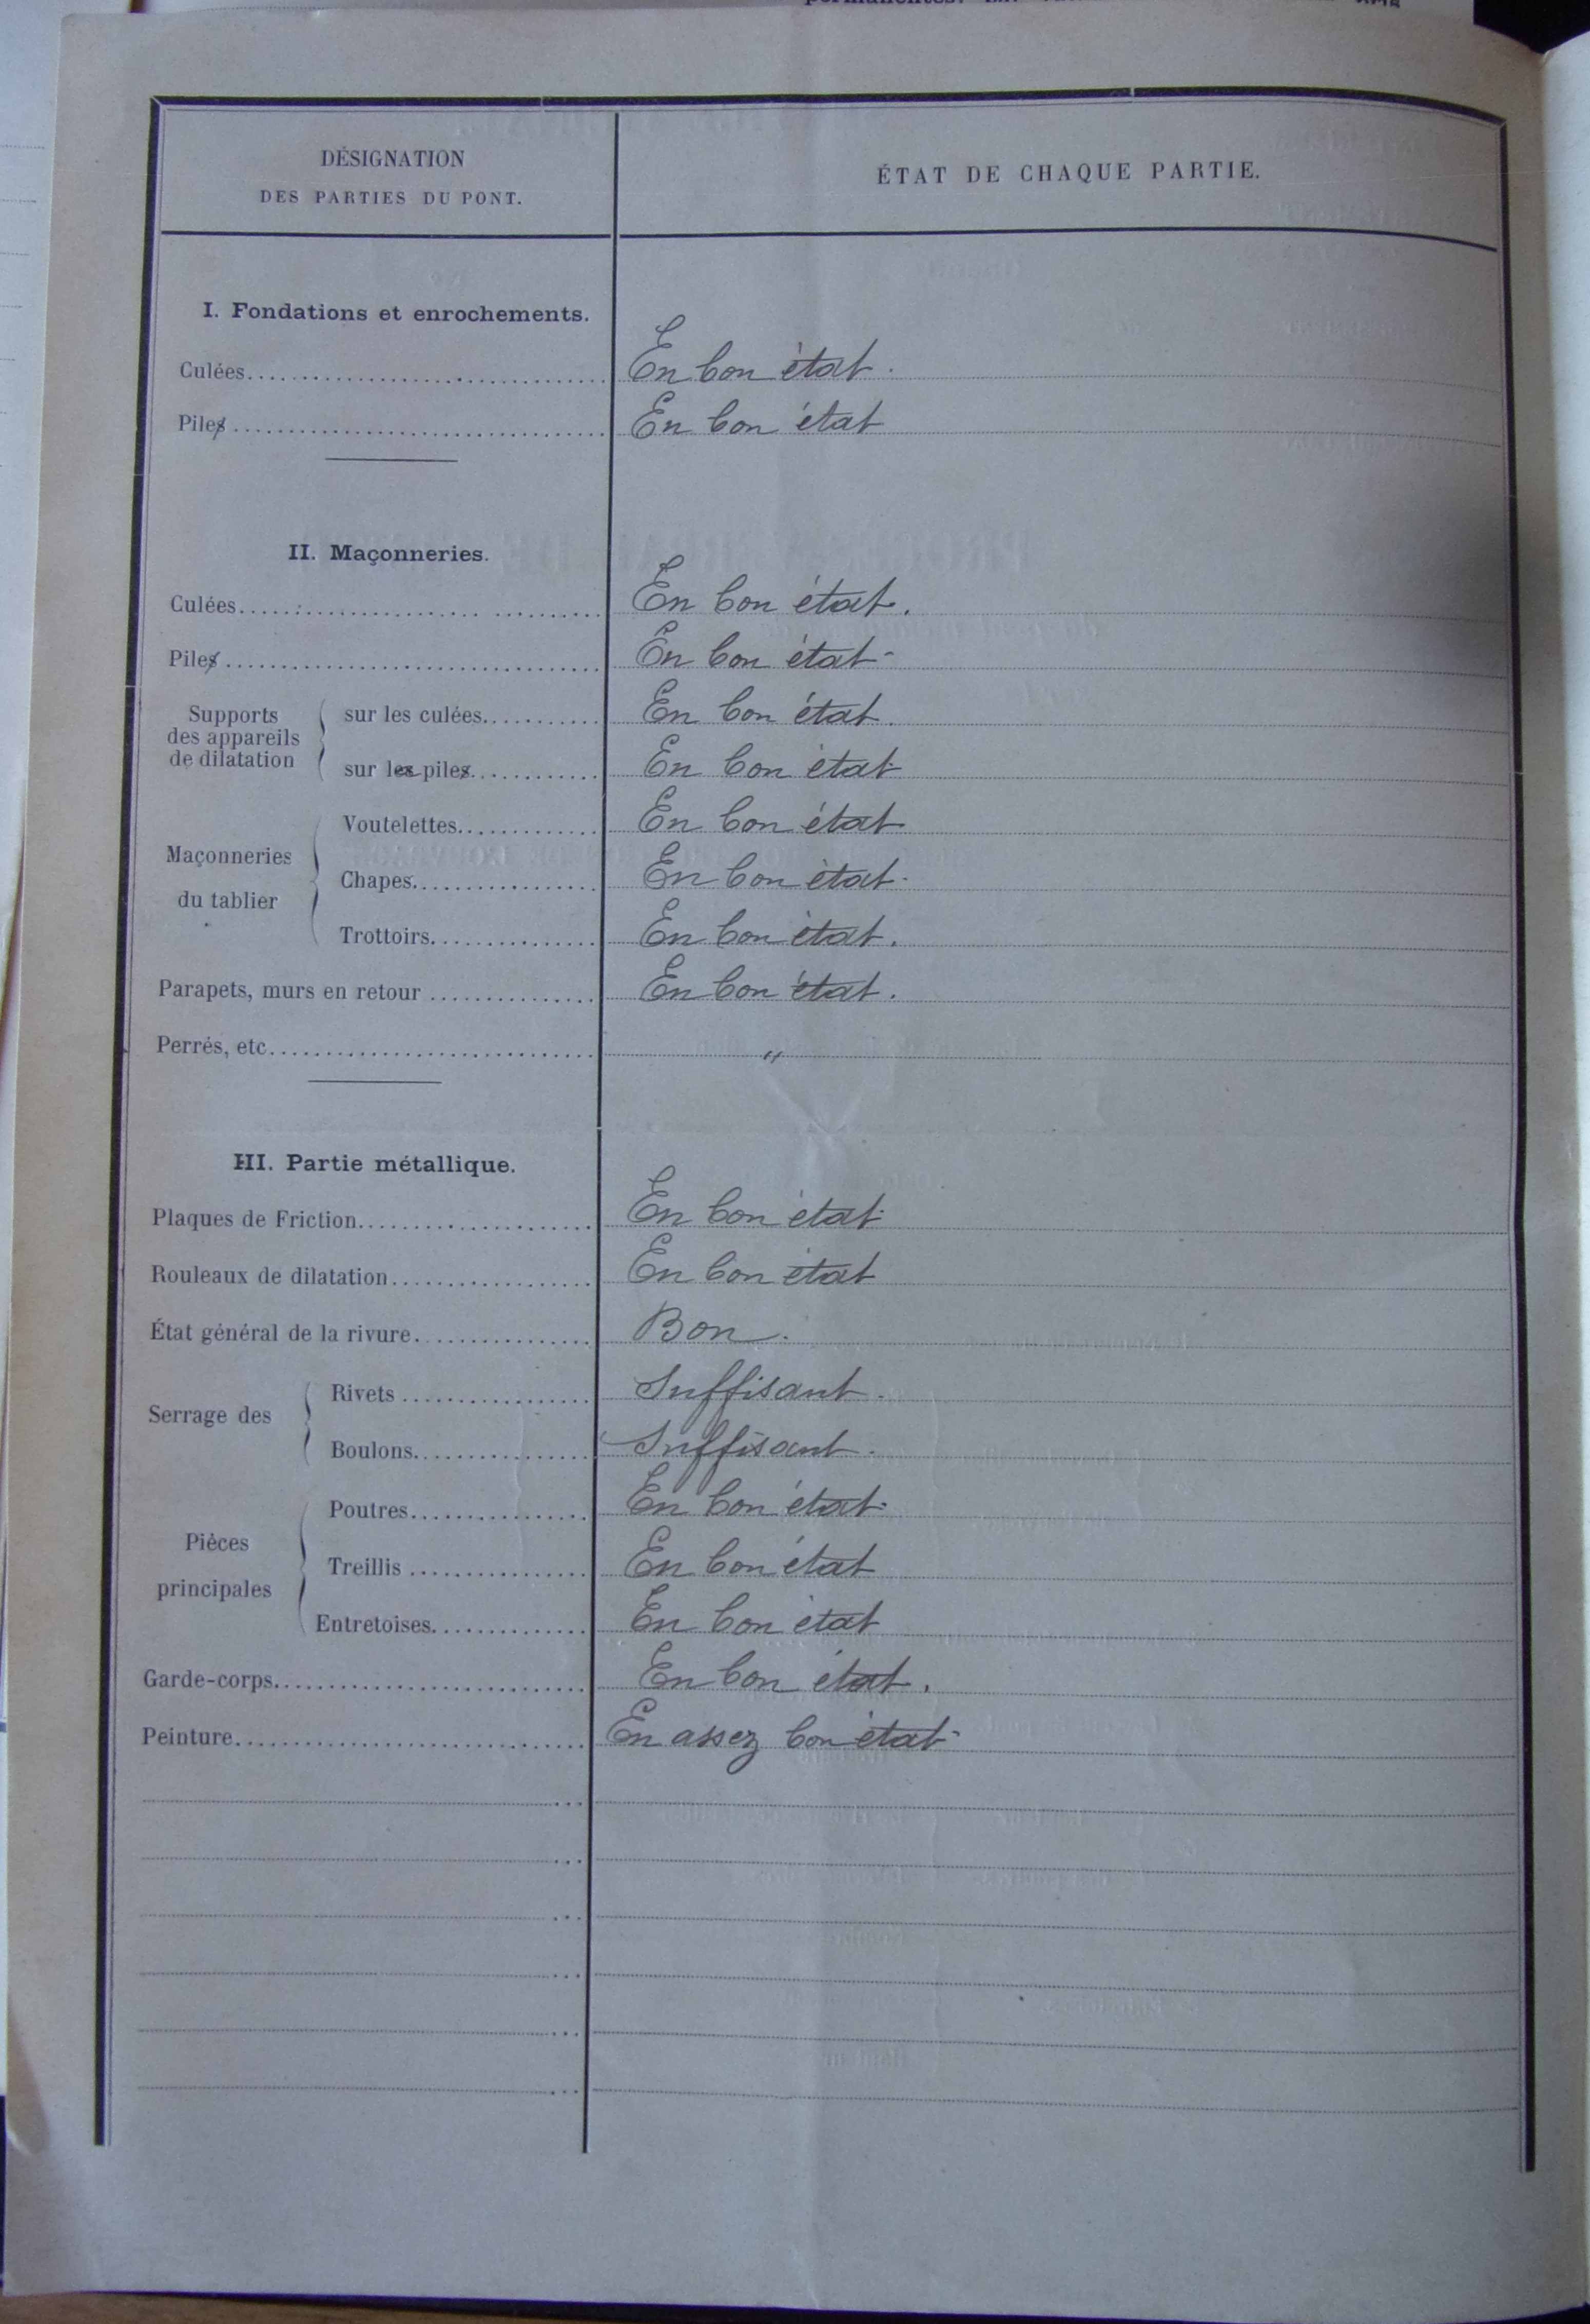 DÉSIGNATION
DES PARTIES DU PONT.
ÉTAT DE CHAQUE PARTIE.
I. Fondations et enrochements.
Culées.......... En bon état.
Piles.......... En bon état
II. Maçonneries.
Culées.......... En bon état.
Piles.......... En bon état
Supports
des appareils
de dilatation
sur les culées.......... En bon état.
sur les piles.......... En bon état
Maçonneries
du tablier
Voutelettes.......... En bon état
Chapes.......... En bon état.
Trottoirs.......... En bon état.
Parapets, murs en retour .......... En bon état.
Perrés, etc.......... "
III. Partie métallique.
Plaques de Friction.......... En bon état
Rouleaux de dilatation.......... En bon état
État général de la rivure.......... Bon.
Serrage des
Rivets .......... Suffisant.
Boulons.......... Suffisant.
Pièces
principales
Poutres.......... En bon état
Treillis .......... En bon état
Entretoises.......... En bon état
Garde-corps.......... En bon état.
Peinture.......... En assez bon état